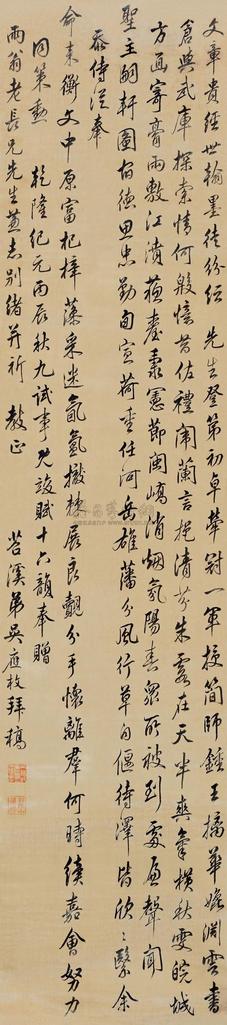 文章貴經世翰墨徒紛紜先生登第初卓犖冠一軍授簡師鍾王摛華媲淵雲書
倉與武庫探索情何殷憶昔佐禮闈蘭言挹清芬朱霞在天半爽氣橫秋雯皖城
方畫寄膏雨敷江濆蘇臺秉憲節閩嶠消烟氛陽春眾所被到處應聲聞
聖主嗣軒圖宿德思忠勤旬宣荷重任何岳雄藩分風行草自偃待澤皆欣欣繄余
忝侍從奉
命来衡文中原富杞梓藻采迷氤氳掇棟展良覿分手懷離羣何時續嘉會努力
同策勳
乾隆紀元丙辰秋九試事既竣賦十六韻奉贈
兩翁老長兄先生兼志別緒并祈教正
苕溪弟吳應枚拜稿